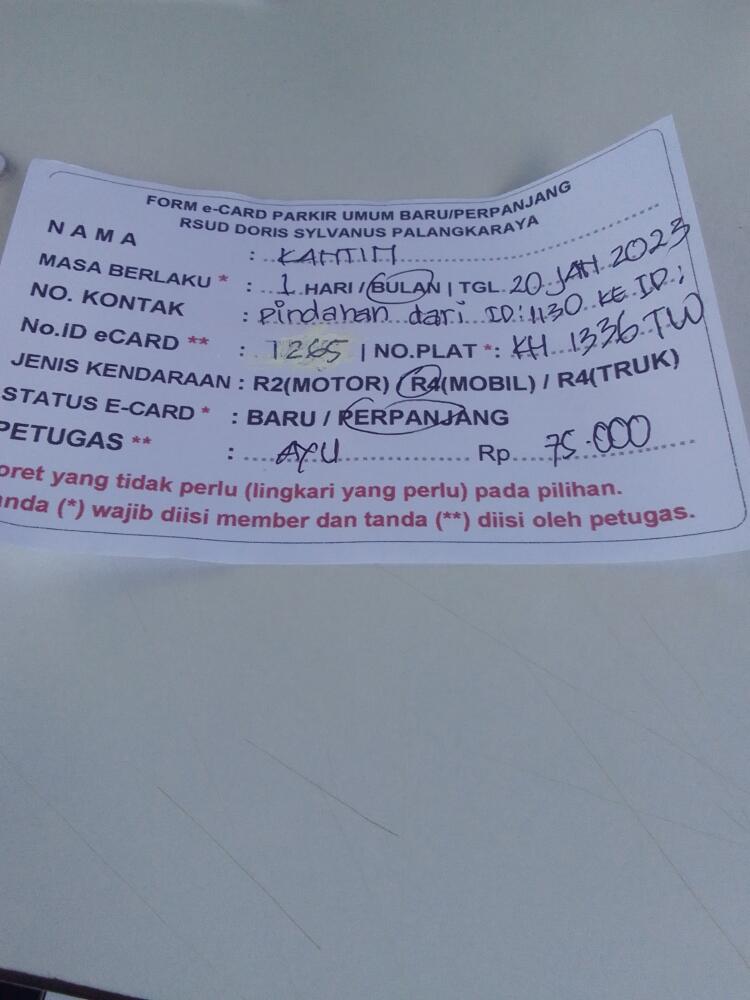 FORM e-CARD PARKIR UMUM BARU/PERPANJANG
RSUD DORIS SYLVANUS PALANGKARAYA
NAMA : KANTIN
MASA BERLAKU * : 1 HARI / BULAN | TGL 20 JAN 2023
NO. KONTAK : Pindahan dari ID: 1130 KE ID:
No.ID eCARD ** : 1265 | NO.PLAT *: KH 1336 TW
JENIS KENDARAAN : R2(MOTOR) / R4(MOBIL) / R4(TRUK)
STATUS E-CARD * : BARU / PERPANJANG
PETUGAS ** : AYU Rp 75.000
oret yang tidak perlu (lingkari yang perlu) pada pilihan.
anda (*) wajib diisi member dan tanda (**) diisi oleh petugas.